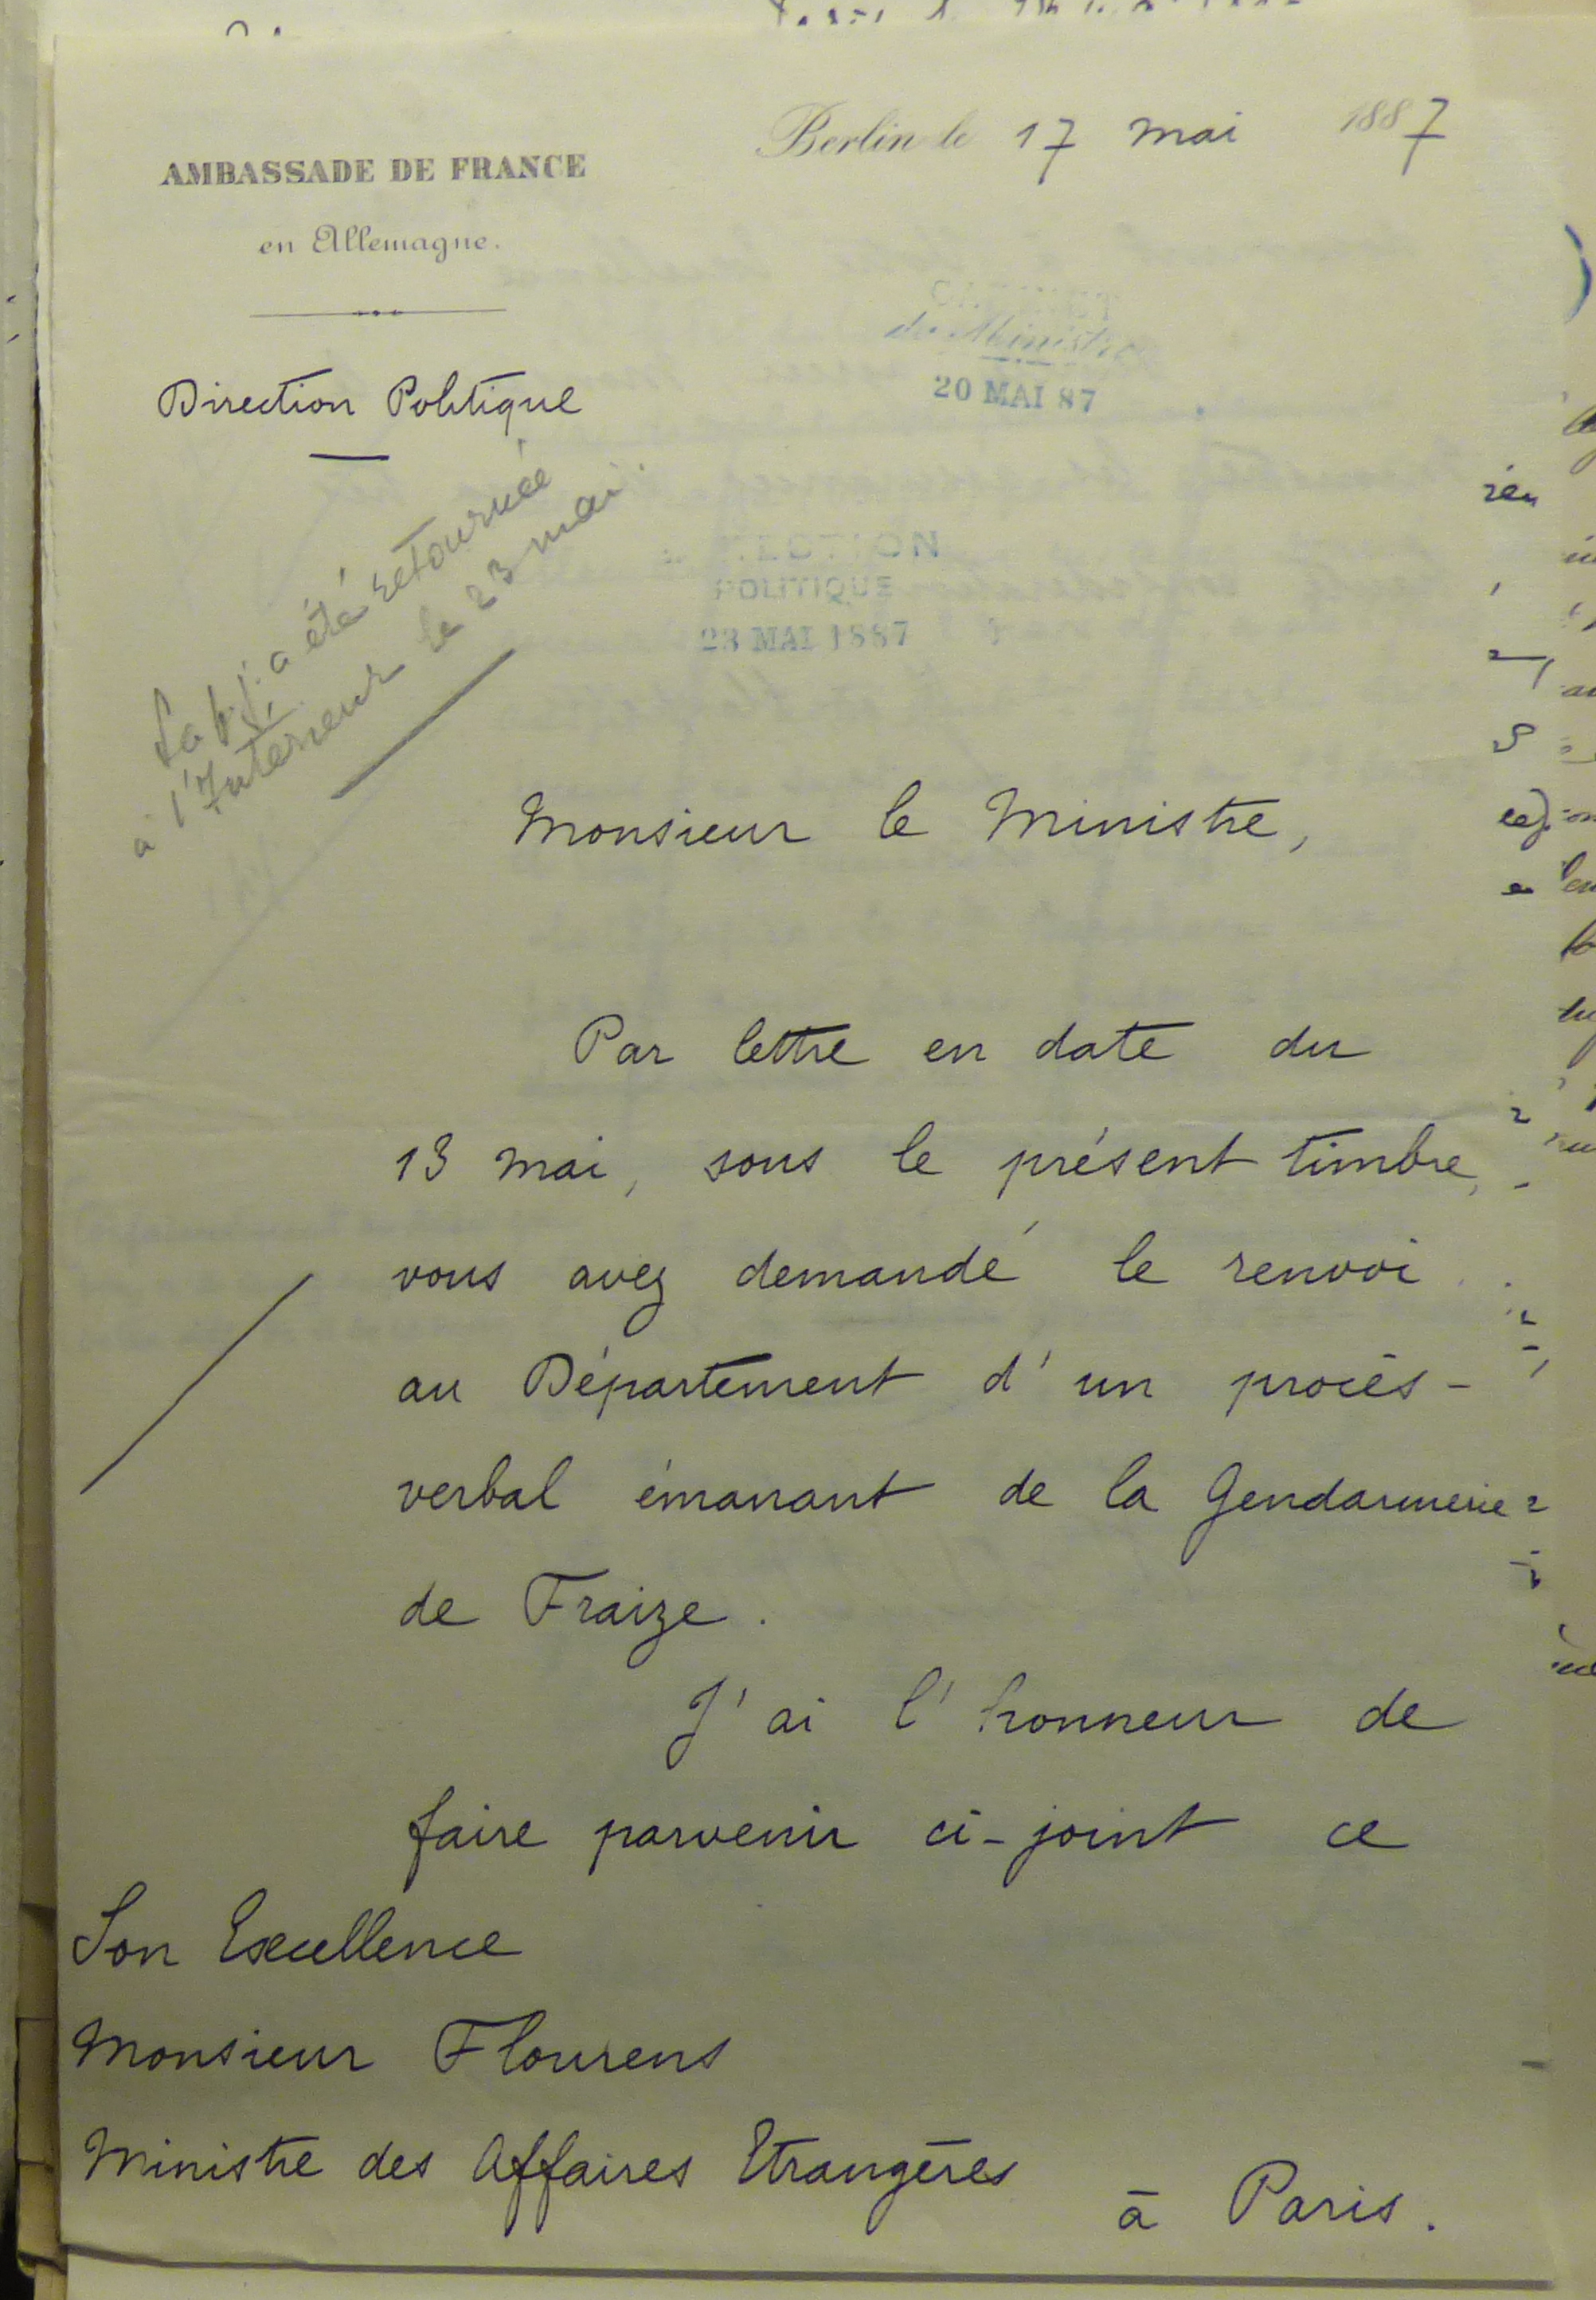 Berlin le 17 mai 1887
AMBASSADE DE FRANCE
en Allemagne.
Direction Politique
CABINET
du Ministre
20 MAI 87
DIRECTION
POLITIQUE
23 MAI 1887
La p. j. a été retournée
à l'Intérieur le 23 mai.
Monsieur le Ministre,
Par lettre en date du
13 mai, sous le présent timbre,
vous avez demandé le renvoi
au Département d'un procès-
verbal émanant de la Gendarmerie
de Fraize.
J'ai l'honneur de
faire parvenir ci-joint ce
Son Excellence
Monsieur Flourens
Ministre des Affaires Etrangères
à Paris.